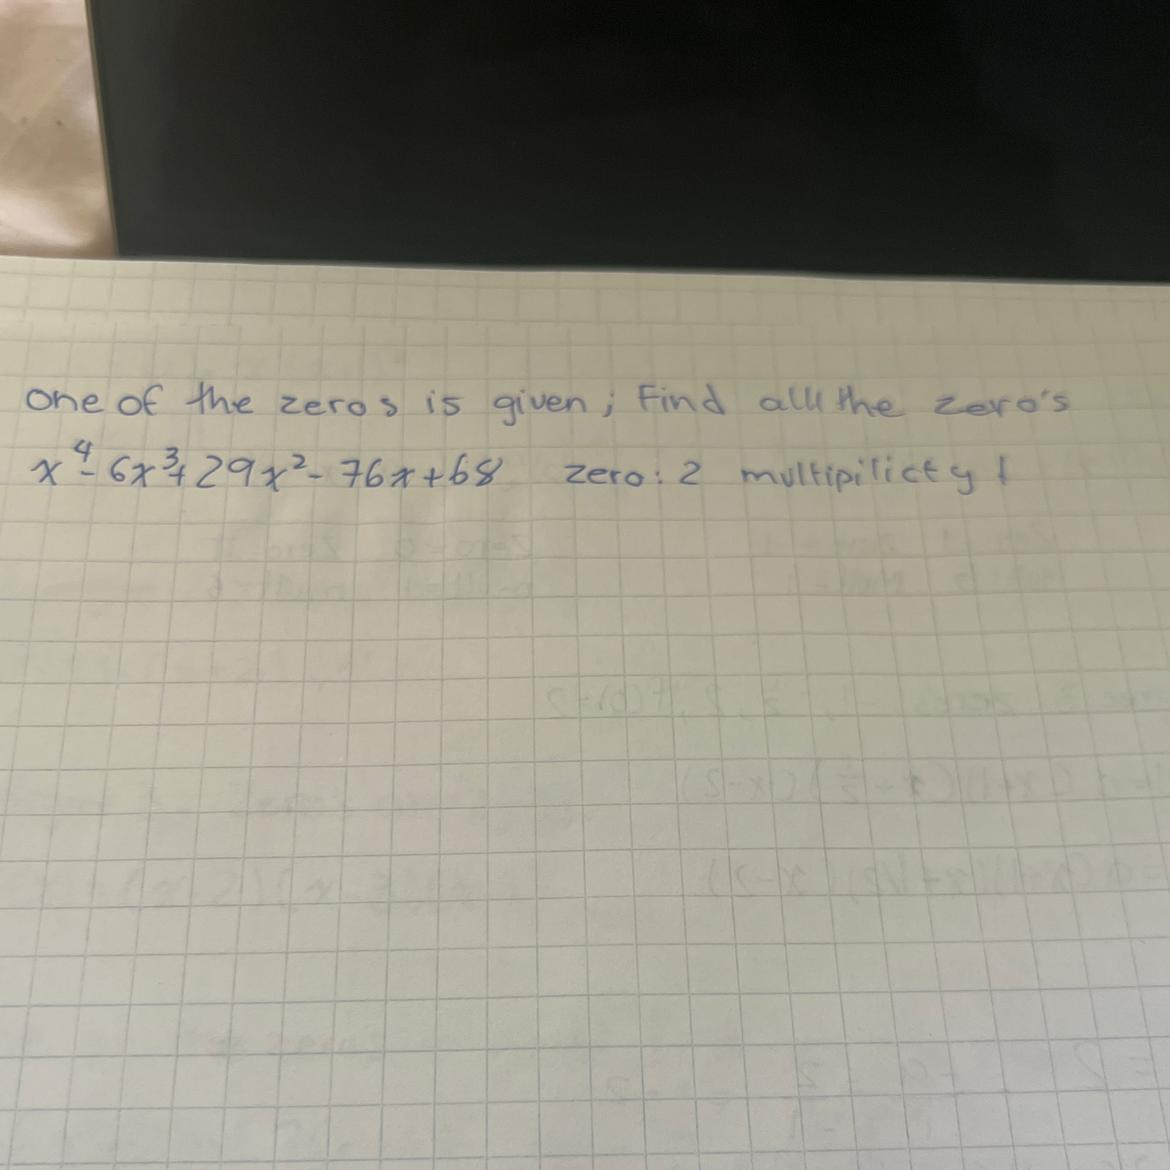 one of the zeros is given; Find all the zero's
x⁴-6x³+29x²-76x+68 zero: 2 multipilicty !